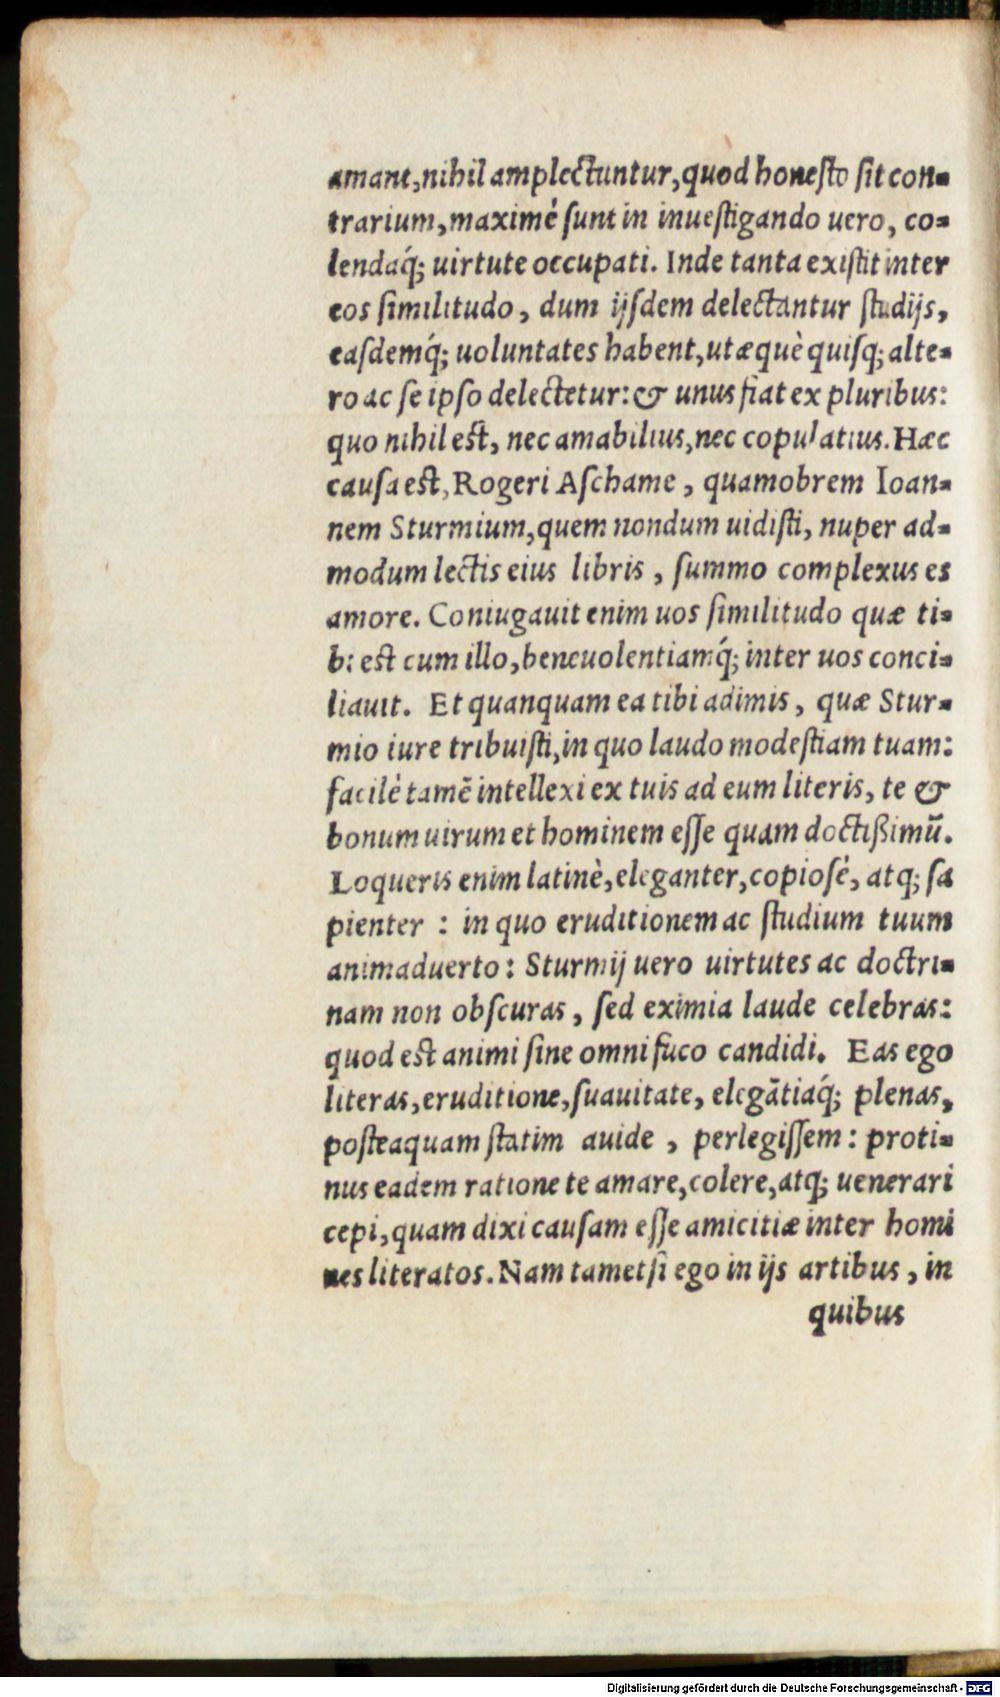 amant,nihil amplectuntur,quod honesto sit con-
trarium,maximè sunt in inuestigando uero, co-
lendaq́; uirtute occupati. Inde tanta existit inter
eos similitudo, dum ijsdem delectantur studijs,
easdemq́; uoluntates habent,ut æquè quisq; alte-
ro ac se ipso delectetur:& unus fiat ex pluribus:
quo nihil est, nec amabilius,nec copulatius. Hæc
causa est, Rogeri Aschame, quamobrem Ioan-
nem Sturmium,quem nondum uidisti, nuper ad-
modum lectis eius libris, summo complexus es
amore. Coniugauit enim uos similitudo quæ ti-
bi est cum illo,beneuolentiamq́; inter uos conci-
liauit. Et quanquam ea tibi adimis, quæ Stur-
mio iure tribuisti,in quo laudo modestiam tuam:
facilè tamē intellexi ex tuis ad eum literis, te &
bonum uirum et hominem esse quam doctißimū.
Loqueris enim latinè,eleganter,copiosè, atq; sa
pienter : in quo eruditionem ac studium tuum
animaduerto: Sturmij uero uirtutes ac doctri-
nam non obscuras, sed eximia laude celebras:
quod est animi sine omni fuco candidi. Eas ego
literas,eruditione,suauitate, elegātiaq́; plenas,
posteaquam statim auide, perlegissem: proti-
nus eadem ratione te amare,colere,atq; uenerari
cepi,quam dixi causam esse amicitiæ inter homi
nes literatos. Nam tametsi ego in ijs artibus, in
quibus
Digitalisierung gefördert durch die Deutsche Forschungsgemeinschaft - DFG